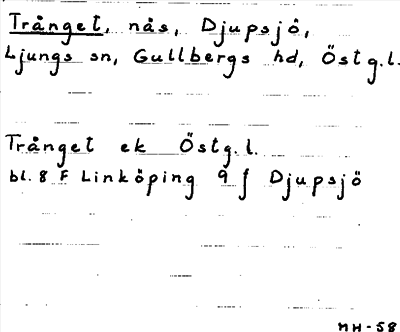 Trånget, nås, Djupsjö,
Ljungs sn, Gullbergs hd, Östg.l.
Trånget ek Östg.l.
bl. 8 F Linköping 9 f Djupsjö
MH-58